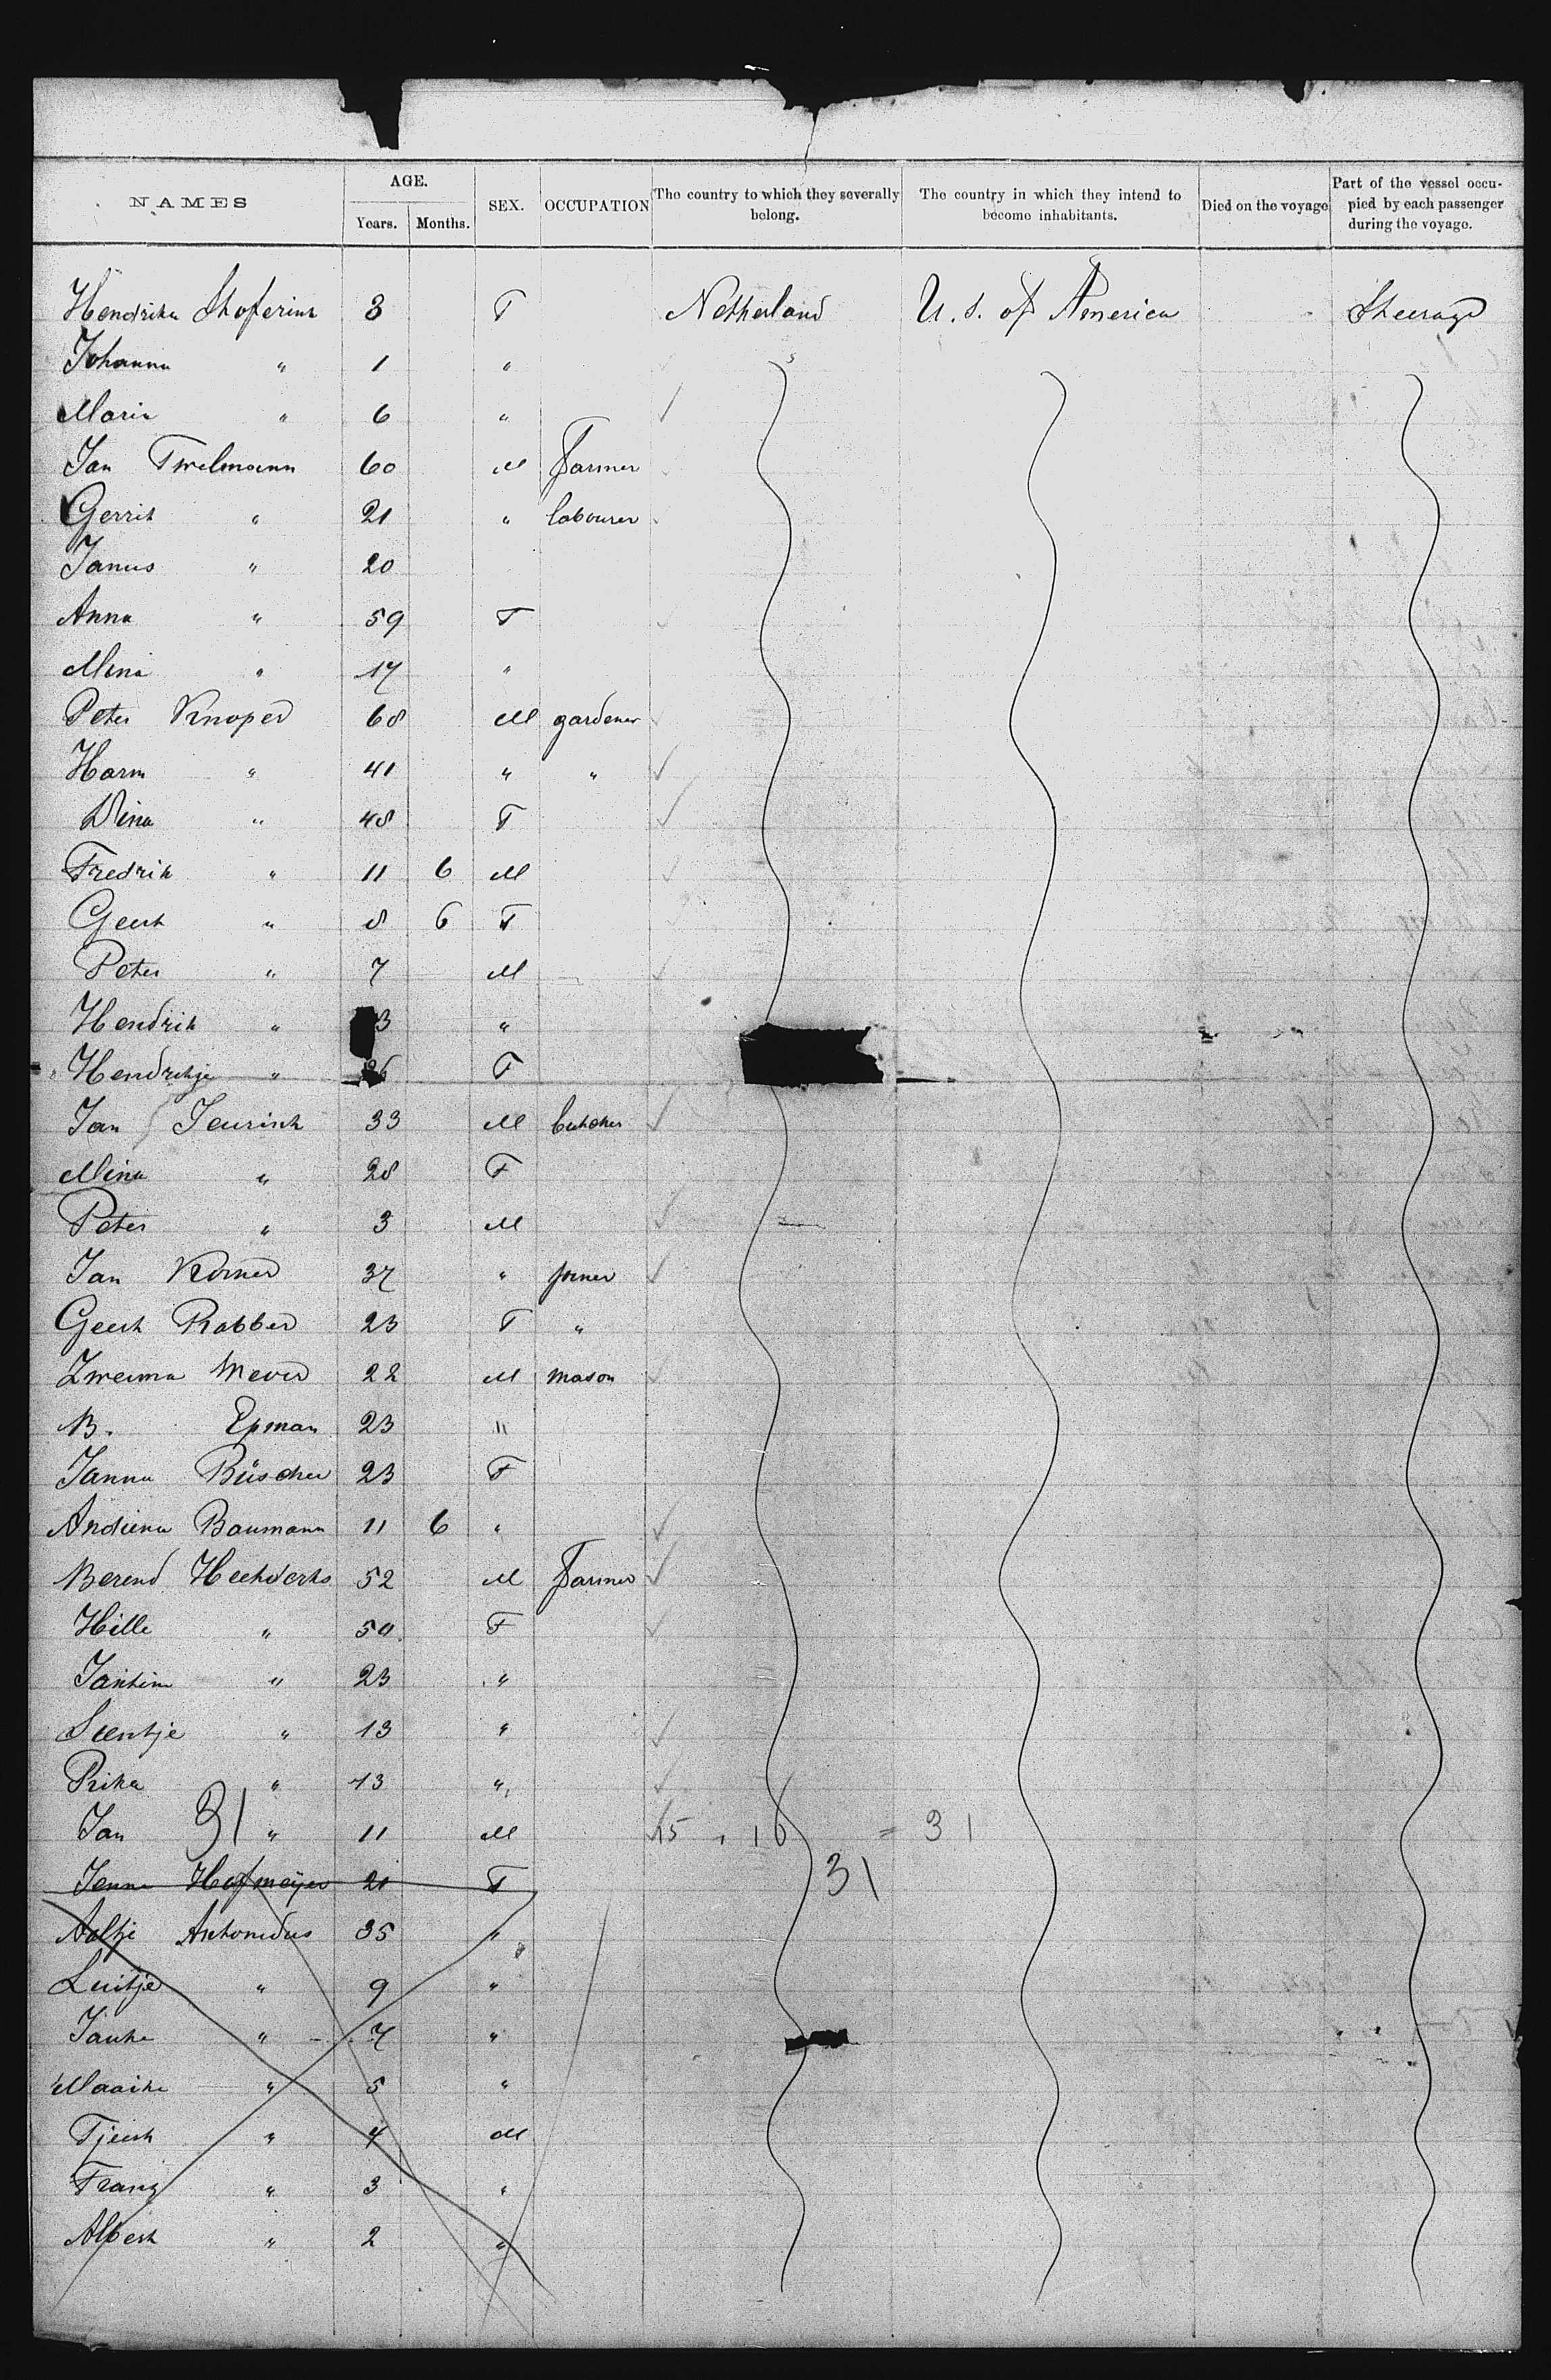 NAMES AGE. Years. Months. SEX. OCCUPATION The country to which they severally belong. The country in which they intend to become inhabitants. Died on the voyage Part of the vessel occupied by each passenger during the voyage.
Hendrika 3 F Netherland U. S. of America Steerage
Johanna " 1 "
Maria " 6 "
Jan Twelmann 60 M Farmer
Gerrit " 21 " labourer
Janus " 20
Anna " 59 F
Mina " 17 "
Peter Knoper 68 M gardener
Harm " 41 " "
Dina " 48 F
Fredrik " 11 6 M
Geert " 8 6 F
Peter " 7 M
Hendrik " 3 "
Hendrikje " 26 F
Jan Jeurink 33 M butcher
Mina " 28 F
Peter " 3 M
Jan 37 " joiner
Geert Rabber 23 F "
Mever 22 M mason
B. Epman 23 "
Janna Büscher 23 F
Baumann 11 6 "
Berend 52 M Farmer
Hille " 50 F
" 23 "
" 13 "
" 13 "
Jan 31 " 11 M 15 , 16 = 31
31
Hofmeijer 21 F
Aaltje Antonidus 35 "
Luitje " 9 "
" 7 "
Maaike " 5 "
" 4 M
Franz " 3 "
Albert " 2 "